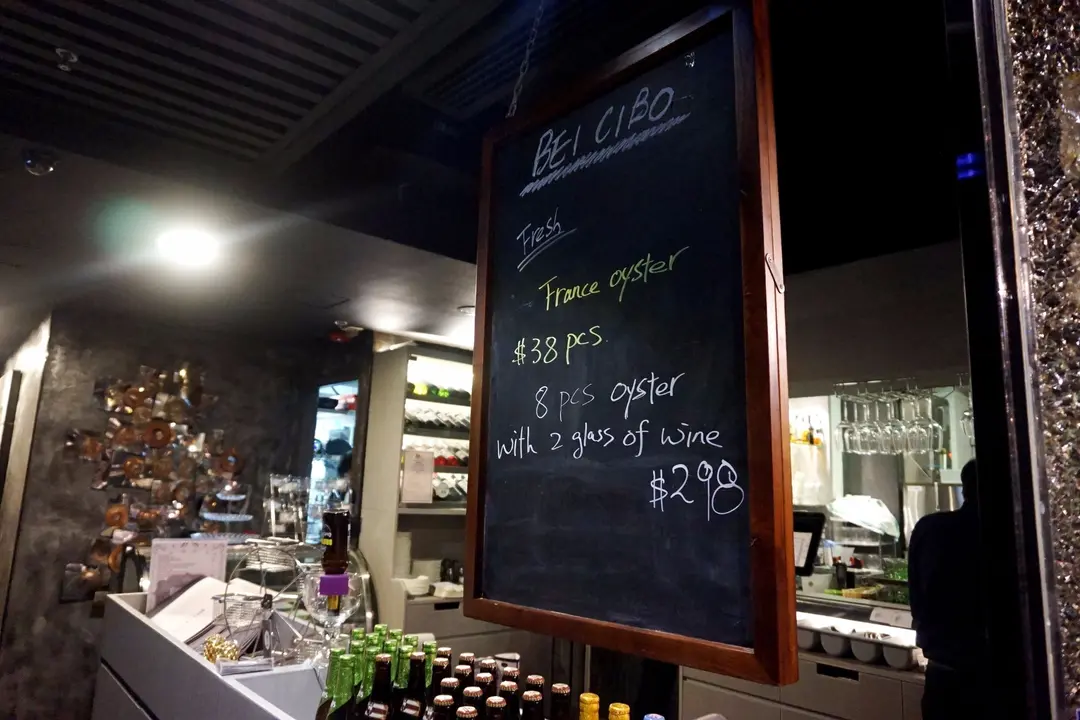 BEI CIBO
Fresh
France oyster
$38 pcs.
8 pcs oyster
with 2 glass of wine
$298